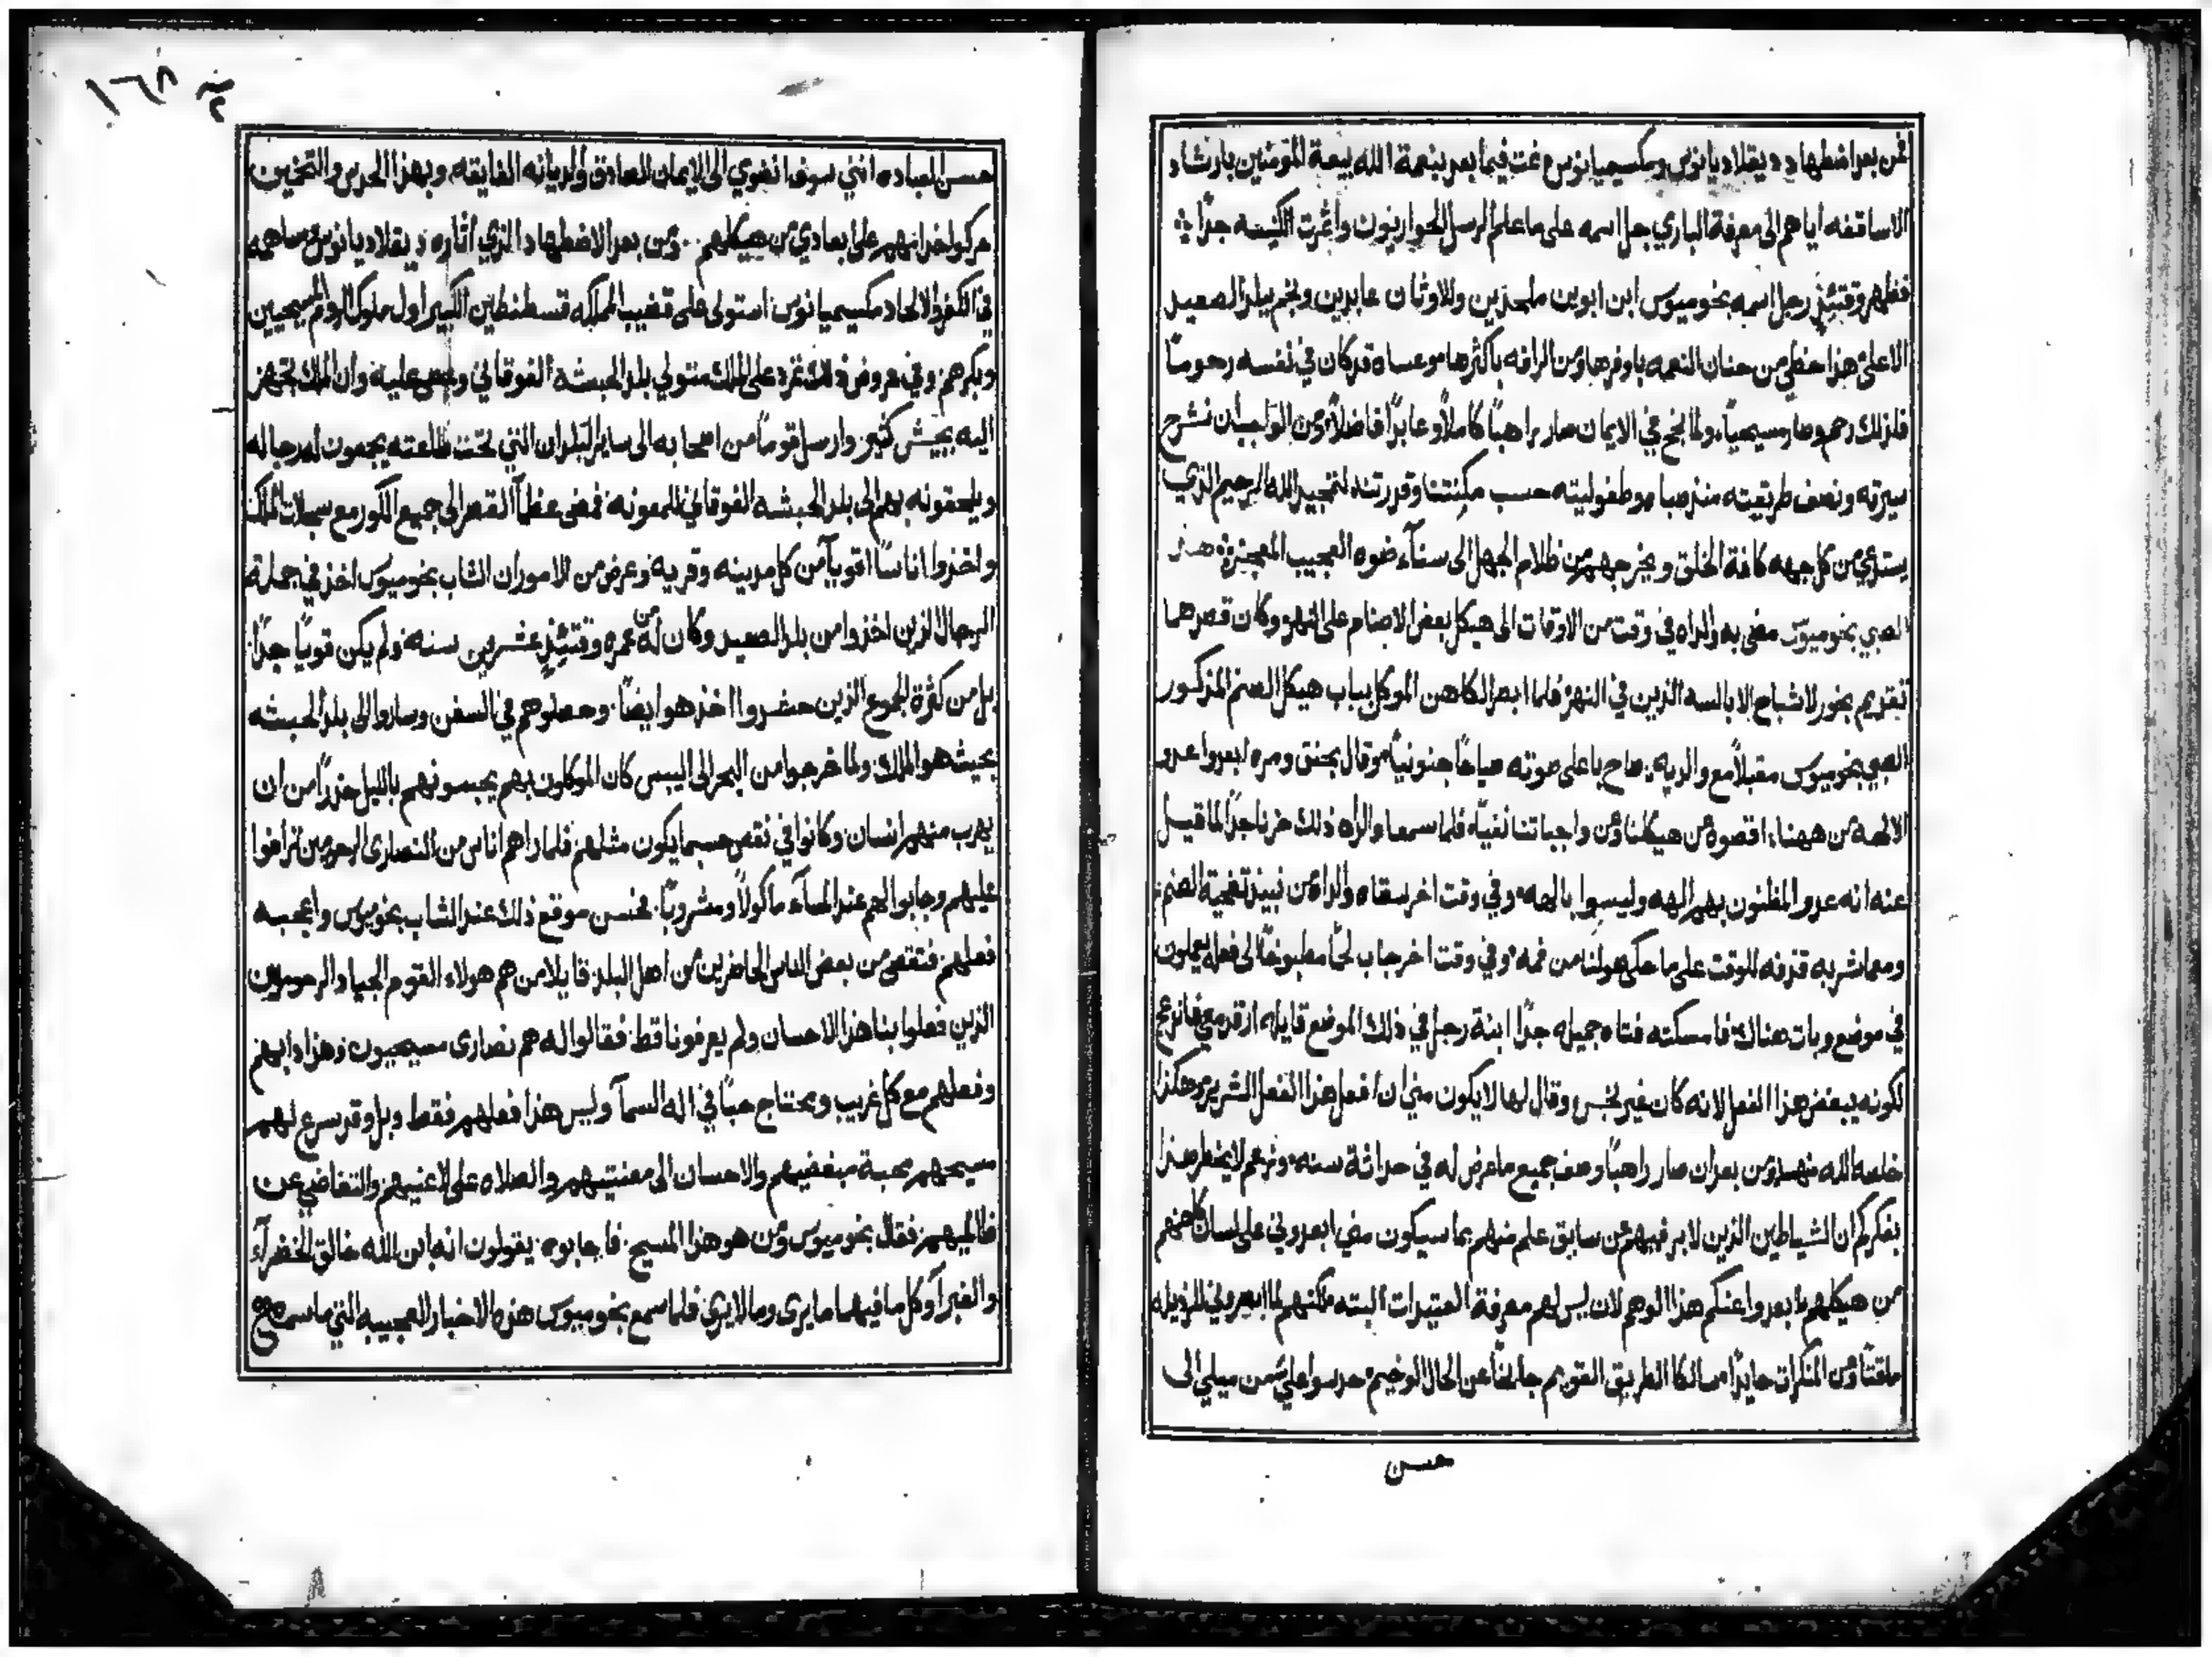 فمن بعد اضطهاد ديقلاديانوس ومكسيميانوس نمت فيما بعد بنعمة الله بيعة المومنين بارشاد
الاساقفه اياهم الى معرفة الباري جل اسمه على ما علم الرسل الحواريون واثمرت الكنيسه جدًا
فظهر وقتيذٍ رجل اسمه بخوميوس ابن ابوين ملحدين وللاوثان عابدين ونجم ببلد الصعيد
الاعلى هذا حظي من حنان النعمه باوفرها ومن الرافه باكثرها وعساه قد كان في نفسه رحومًا
فلذلك رحم وصار مسيحيًا، ولما نجح في الايمان صار راهبًا كاملاً وعابدًا فاضلاً ومن الواجب ان نشرح
سيرته ونصف طريقته منذ صباه وطفوليته حسب مكنتنا وقدرتنا لتمجيد الله الرحيم الذي
يستدعي من كل جهه كافة الخلق ويخرجهم من ظلام الجهل الى سنآء ضوه العجيب المعجز هذا
الصبي بخوميوس مضى به والداه في وقت من الاوقات الى هيكل بعض الاصنام على النهر وكان قصدهما
تقديم بخور لاشباح الابالسه الذين في النهر فلما ابصر الكاهن الموكل بباب هيكل الصنم المذكور
الصبي بخوميوس مقبلاً مع والديه صاح باعلى صوته صياحًا جنونيًا وقال بحنق ومره ابعدوا عدو
الالهه من ههنا اقصوه من هيكلنا ومن واجباتنا نفيه فلما سمعا والداه ذلك حزنا جدًا لما قيل
عنه انه عدو المظنون بهم الهه وليسوا بالهه وفي وقت اخر سقاه والداه من نبيذ تضحية الصنم
ومما شربه قذفه للوقت على ما حكى هو لنا من فمه وفي وقت اخر جاب لحمًا مطبوخًا الى فعله يعملون
في موضع وبات هناك فامسكته فتاه جميله جدًا ابنة رجل في ذلك الموضع قايله ارقد معي فانزعج
لكونه يبغض هذا الفعل لانه كان غير نجس وقال لها لا يكون مني ان افعل هذا الفعل الشرير وهكذا
خلصه الله منها ومن بعد ان صار راهبًا وصف جميع ما عرض له في حداثة سنه وزعم لا يخطر هذا
بفكركم ان الشياطين الذين لا بر فيهم من سابق علم منهم بما سيكون مني ابعدوني على لسان كاهنهم
من هيكلهم ابعدوا عنكم هذا الوهم لان ليس لهم معرفة العتيدات البته لكنهم لما ابصروني للرذيله
ماقتًا ومن المنكرات حايدًا سالكا الطريق القويم جانحًا عن الحال الوخيم حدسوا علي من ميلي الى
حسن
١٦٨
حسن العباده انني سوف انضوي الى الايمان الصادق والديانه الفايقه وبهذا الحدس والتخمين
حركوا خدامهم على ابعادي من هيكلهم ومن بعد الاضطهاد الذي اثاره ديقلاديانوس ومساهمه
في الكفر والالحاد مكسيميانوس استولى على قضيب المملكه قسطنطين الكبير اول ملوك الروم المسيحيين
وبكرهم وفي عروض ذلك تمرد على الملك متولي بلد الحبشه الفوقاني وعصى عليه وان الملك تجهز
اليه بجيش كثير وارسل قومًا من اصحابه الى ساير البلدان التي تحت طاعته يجمعون له رجاله
ويلحقونه بهم الى بلد الحبشه الفوقاني للمعونه فمضى عظمآ القصر الى جميع الكور مع سجلات الملك
واخذوا اناسًا اقويآ من كل مدينه وقريه وعرض من الامور ان الشاب بخوميوس اخذ في جملة
الرجال الذين اخذوا من بلد الصعيد وكان له من عمره وقتيذٍ عشرين سنه ولم يكن قويًا جدًا
بل من كثرة الجموع الذين حضروا اخذ هو ايضًا وحصلوهم في السفن وساروا الى بلد الحبشه
بحيث هو الملك ولما خرجوا من البحر الى اليبس كان الموكلون بهم يحبسونهم بالليل حذرًا من ان
يهرب منهم انسان وكانوا في نقص حسبما يكون مثلهم فلما راهم اناس من النصارى الرحومين ترأفوا
عليهم وجابوا لهم عند المسآء ماكولاً ومشروبًا فحسن موقع ذلك عند الشاب بخوميوس واعجبه
فعلهم فتقصى من بعض الناس الحاضرين من اهل البلد قايلا من هم هولاء القوم الجياد الرحومون
الذين فعلوا بنا هذا الاحسان ولم يعرفونا قط فقالوا له هم نصارى مسيحيون وهذا دابهم
وفعلهم مع كل غريب ومحتاج حبًا في اله السمآ وليس هذا فعلهم فقط وبل وقد سرع لهم
مسيحهم محبة مبغضيهم والاحسان الى معنتيهم والصلاه على لاعنيهم والتغاضي عن
ظالميهم فقال بخوميوس ومن هو هذا المسيح فاجابوه يقولون انه ابن الله خالق الخضرآء
والغبرآ وكل ما فيهما ما يرى وما لا يرى فلما سمع بخوميوس هذه الاخبار العجيبه التي ما سمع